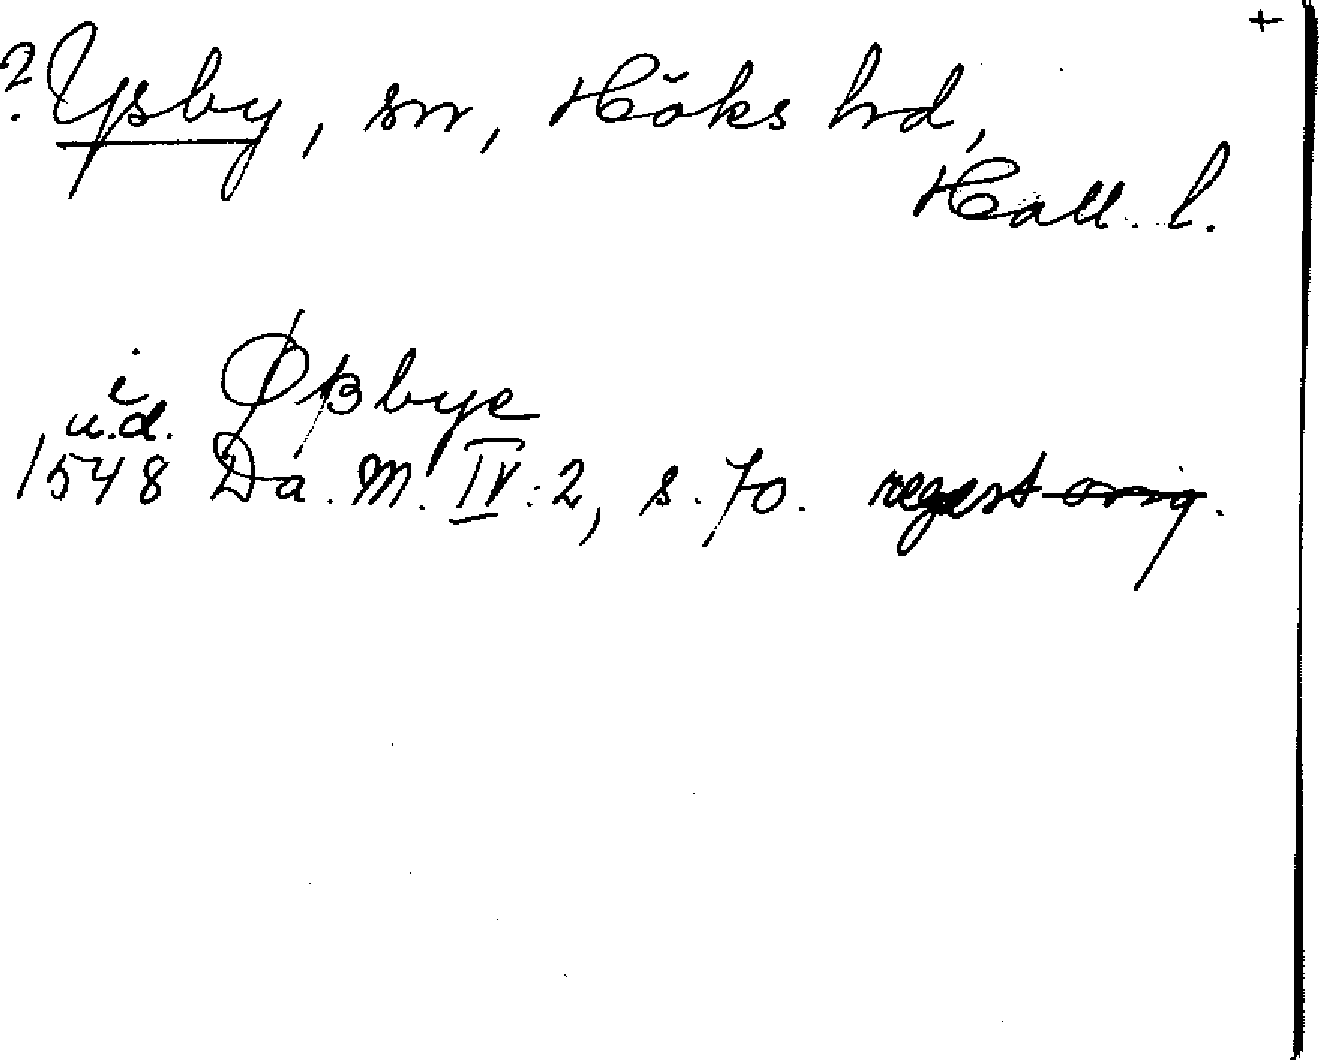 +
? Ysby, sn, Höks hd,
Hall. l.
i Øßbye
u.d.
1548 Da. M. IV:2, s. 70. regest orig.